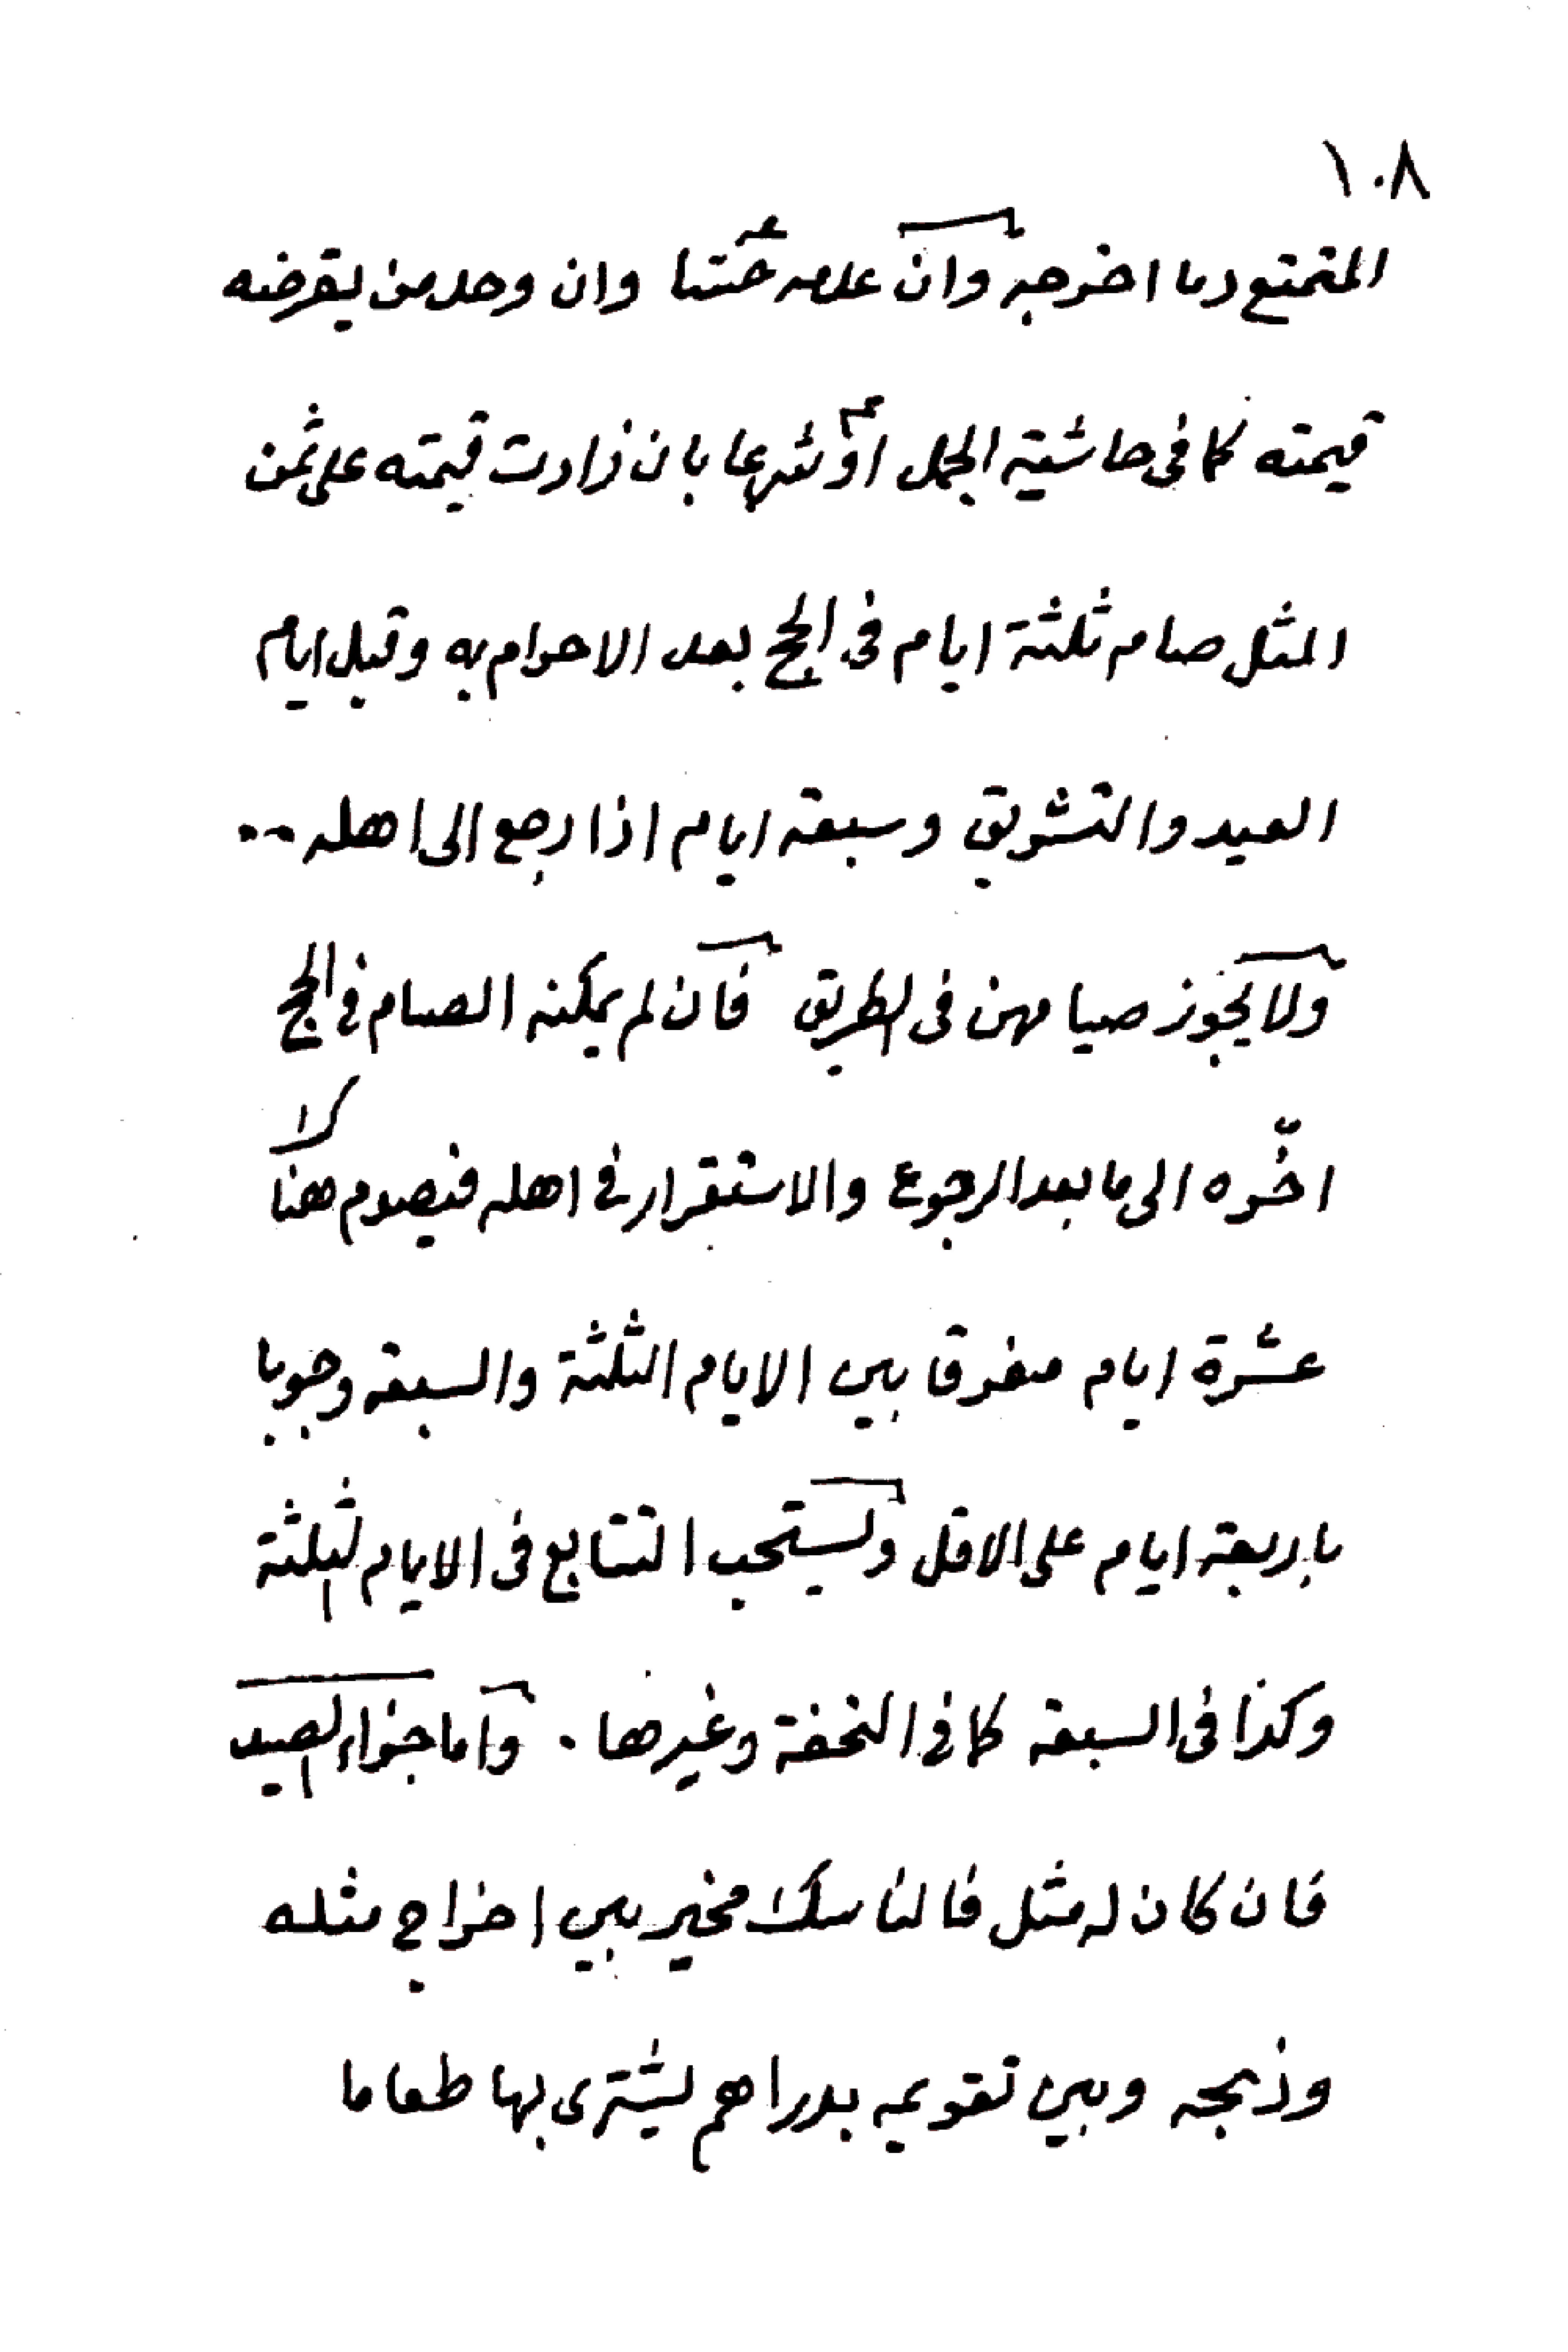 ١٠٨
المتمتع دما اخرجه وان عدمه حسا وان وجد من يقرضه
قيمته كما فى حاشية الجمل او شرعا بان زادت قيمته على ثمن
المثل صام ثلثة ايام فى الحج بعد الاحرام به وقبل ايام
العيد والتشريق وسبعة ايام اذا رجع الى اهله ..
ولا يجوز صيامهن فى الطريق فان لم يمكنه الصيام فى الحج
اخّره الى ما بعد الرجوع والاستقرار فى اهله فيصوم هناك
عشرة ايام مفرقا بين الايام الثلثة والسبعة وجوبا
باربعة ايام على الاقل ويستحب التتابع فى الايام الثلثة
وكذا فى السبعة كما فى التحفة وغيرها . واما جزاء الصيد
فان كان له مثل فالناسك مخير بين اخراج مثله
وذبحه وبين تقويمه بدراهم ليشترى بها طعاما